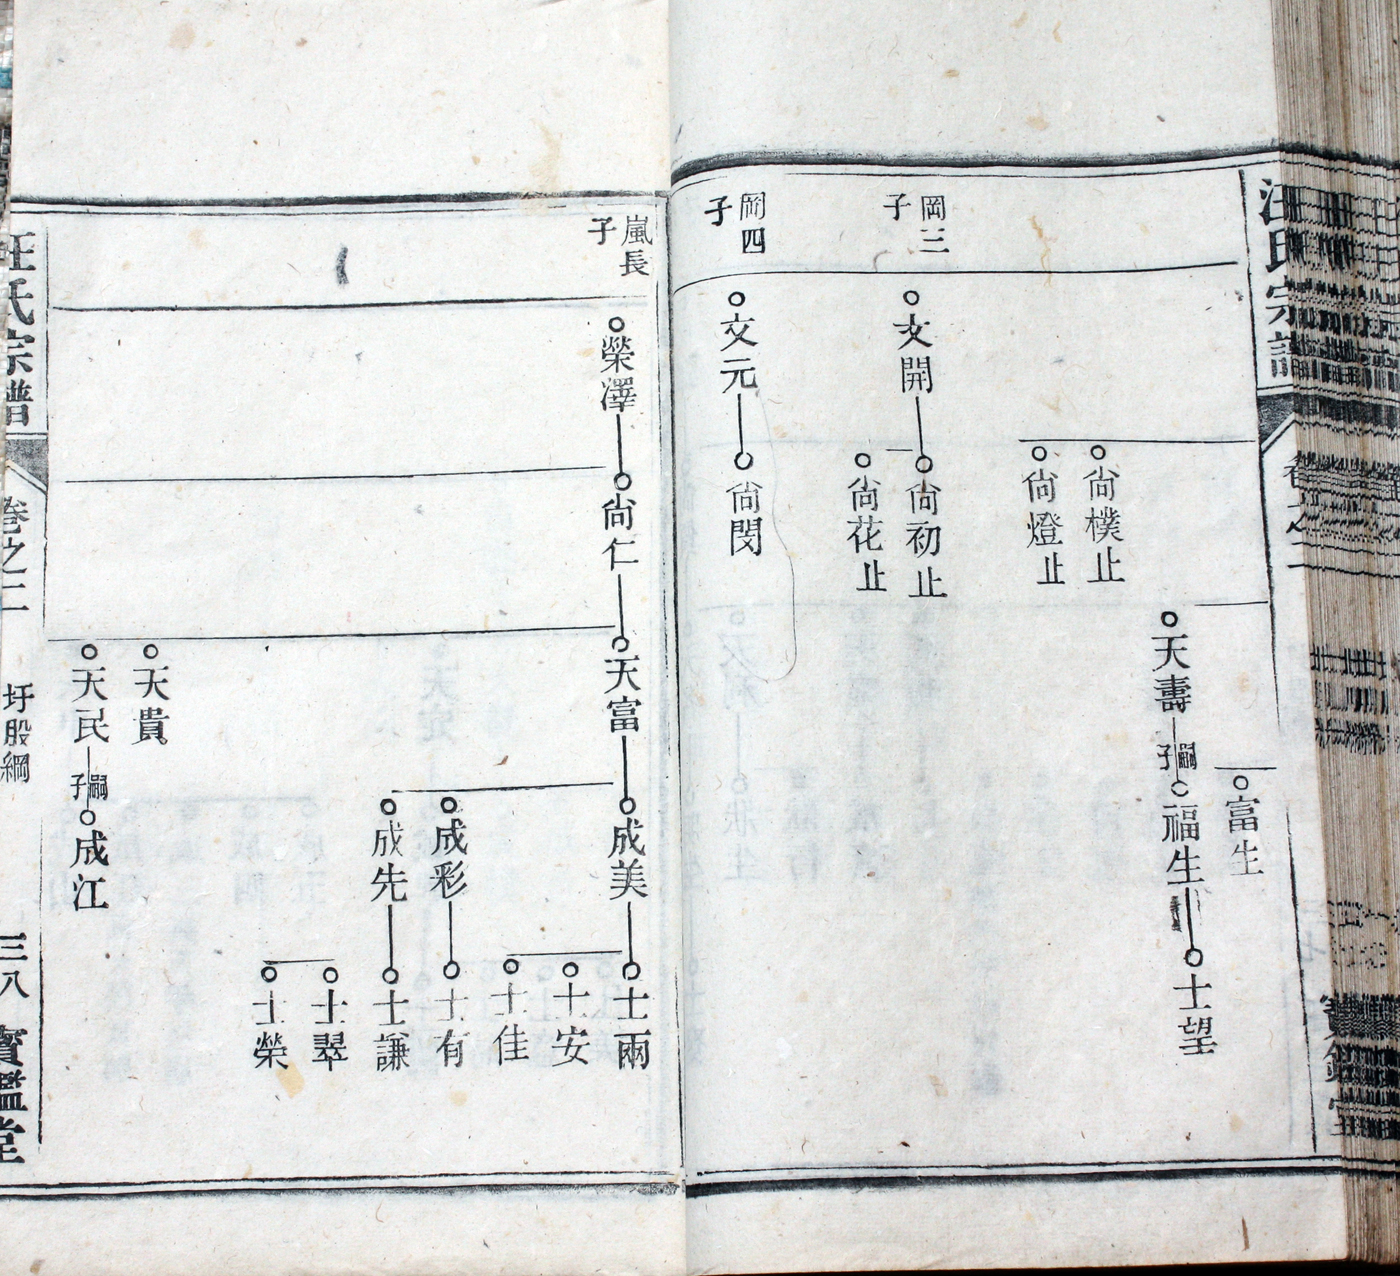 汪氏宗譜
富生
天壽
嗣子
福生
士望
尙樸止
尙燈止
岡三子
文開
尙初止
尙花止
岡四子
文元
尙閔
嵐長子
榮澤
尙仁
天富
成美
士爾
士安
士佳
成彩
士有
成先
士謙
士翠
士榮
天貴
天民
嗣子
成江
汪氏宗譜
卷之二
圩股綱
三八
寶鑑堂